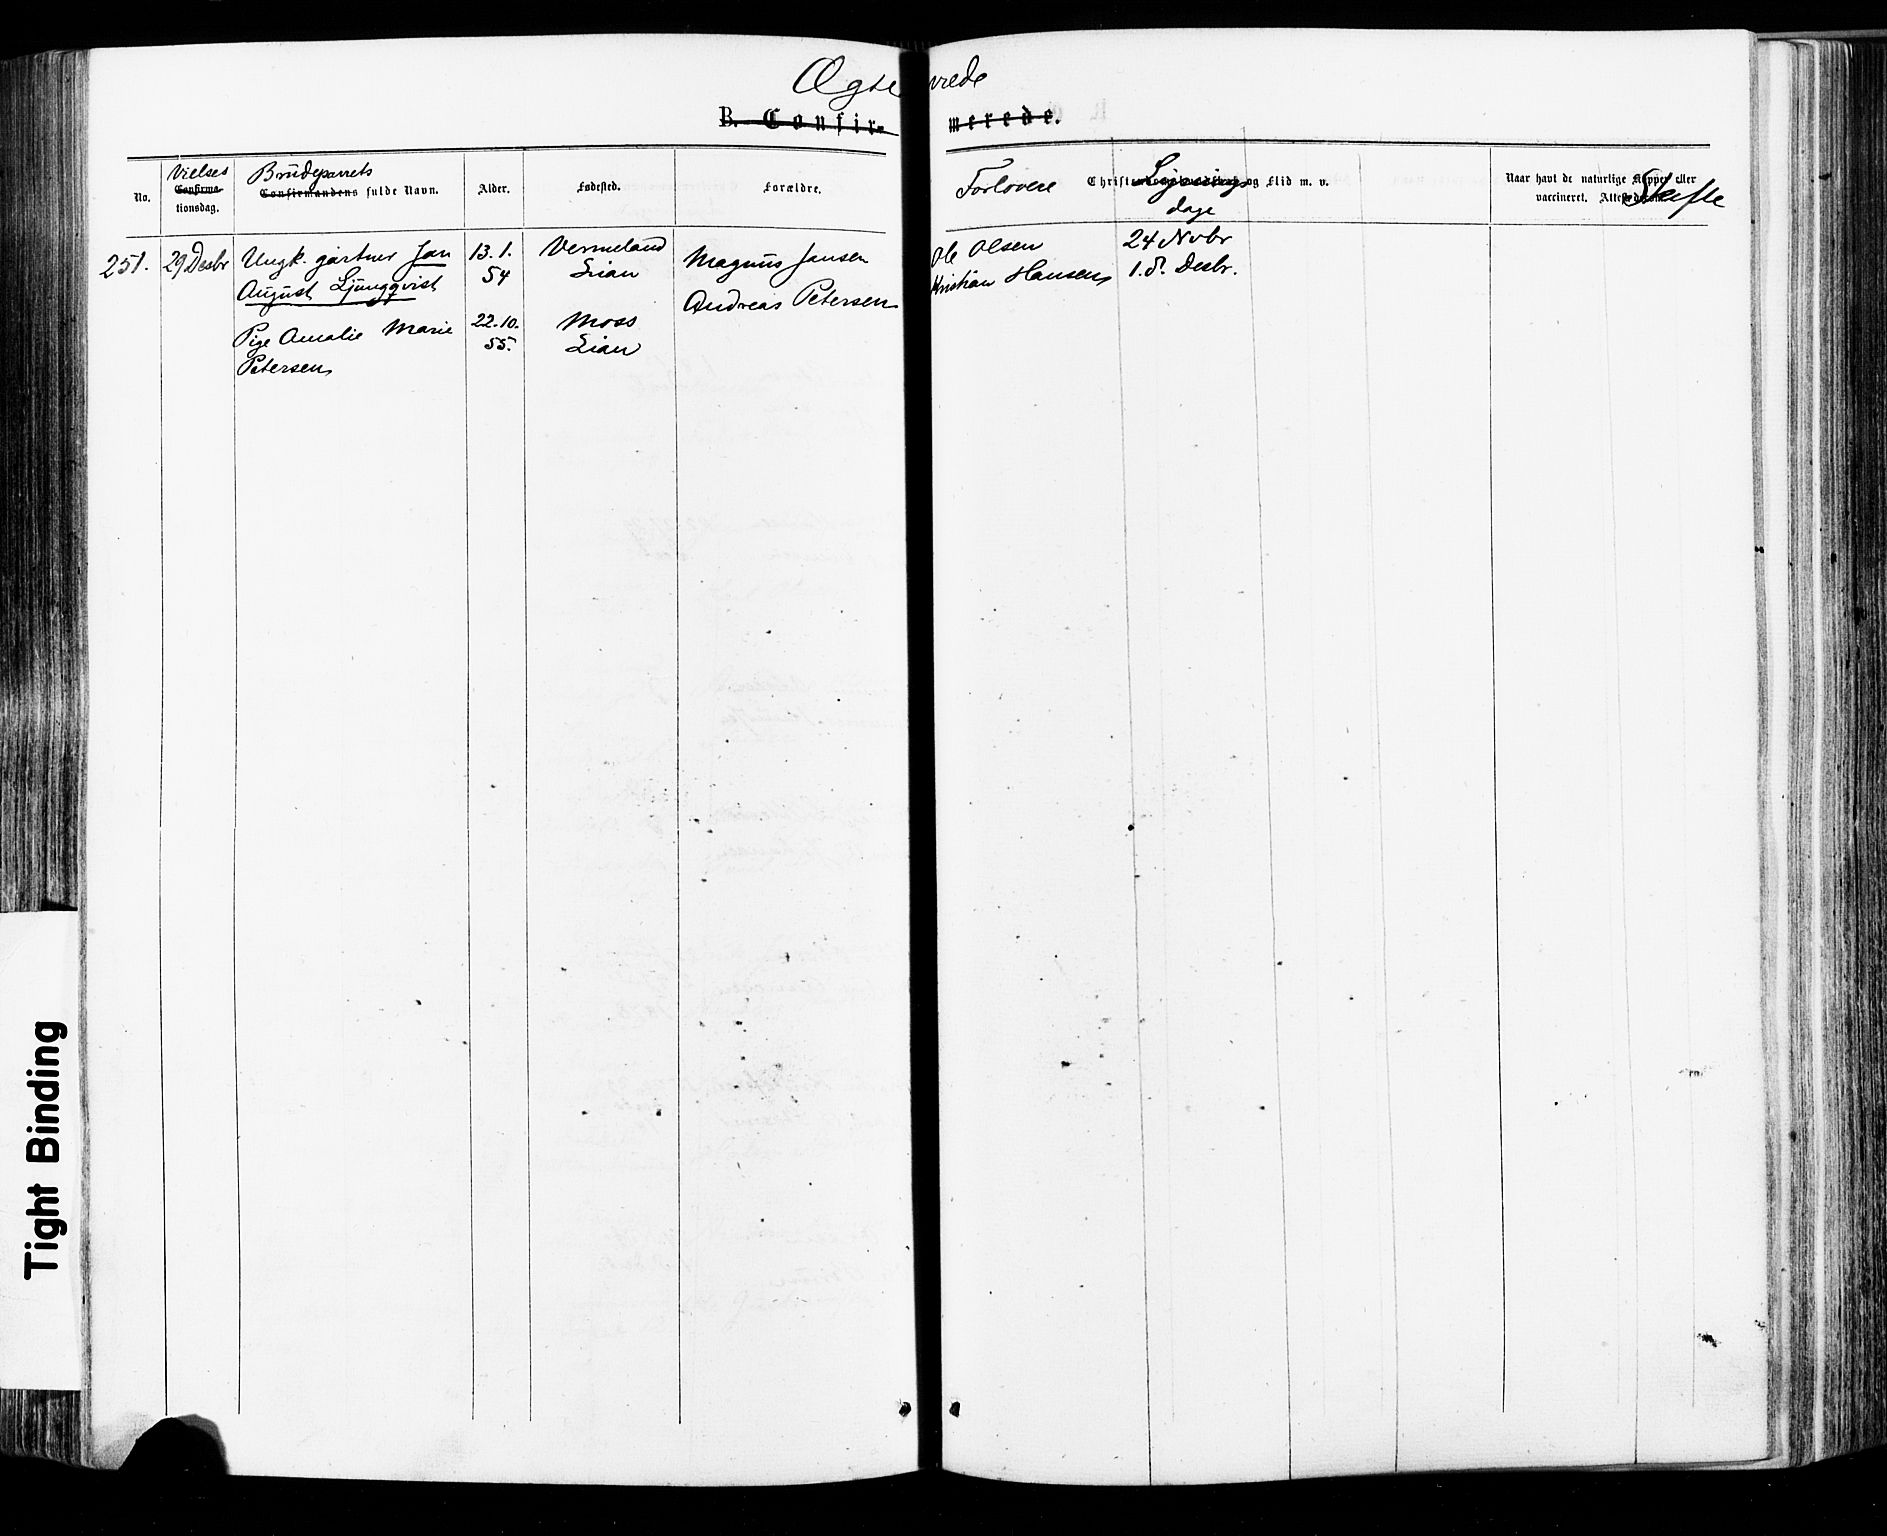 Ægtevviede
B. Confirmerede.
No.
Vielses
Confirma-
tionsdag.
Brudeparrets
Confirmandens fulde Navn.
Alder.
Fødested.
Forældre.
Forlovere
Christendomskundskab og Flid m. v.
Lysnings
dage
Naar havt de naturlige Kopper eller
vaccineret.
Skifte
251.
29 Desbr
Ungk. gartner Jan
August Ljungqvist
13. 1.
54
Vermeland
Lian
Magnus Jansen
Ole Olsen
Kristian Hansen
24 Novbr
1. 8. Desbr.
Pige Amalie Marie
Petersen
22. 10.
55.
Moss
Lian
Andreas Petersen
Tight Binding